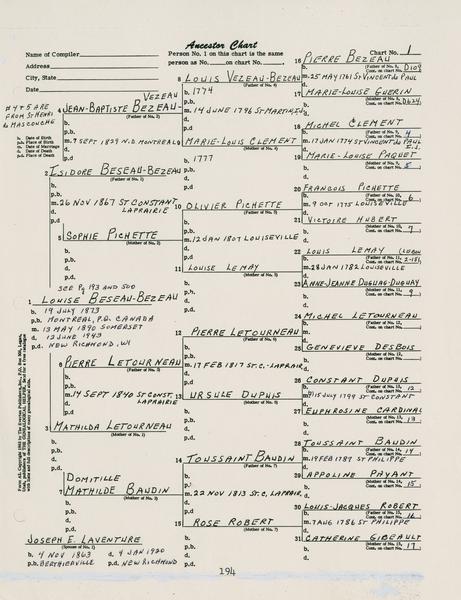 Ancestor Chart
Name of Compiler
Address
City, State
Date
Person No. 1 on this chart is the same
person as No. on chart No.
Chart No. 1
16 PIERRE BEZEAU
(Father of No. 8,
Cont. on chart No. D109)
b.
m. 25 MAY 1761 ST VINCENT de PAUL
d.
8 LOUIS VEZEAU-BEZEAU
(Father of No. 4)
b. 1774
p.b.
m. 14 JUNE 1796 ST MARTIN
d.
p.d.
17 MARIE-LOUISE GUERIN
(Mother of No. 8,
Cont. on chart No. D624)
b.
d.
#4+5 ARE
FROM ST HENRI
de MASCOUCHE
b. Date of Birth
p.b. Place of Birth
m. Date of Marriage
d. Date of Death
p.d. Place of Death
VEZEAU
4 JEAN-BAPTISTE BEZEAU-
(Father of No. 2)
b.
p.b.
m. 9 SEPT 1829 N.D. MONTREAL
d.
p.d.
18 MICHEL CLEMENT
(Father of No. 9,
Cont. on chart No. 4)
b.
m. 17 JAN 1774 ST VINCENT de PAUL
d.
9 MARIE-LOUISE CLEMENT
(Mother of No. 4)
b. 1777
p.b.
d.
p.d.
19 MARIE-LOUISE PAQUET
(Mother of No. 9,
Cont. on chart No. 5)
b.
d.
2 ISIDORE BESEAU-BEZEAU
(Father of No. 1)
b.
p.b.
m. 26 NOV 1867 ST CONSTANT
LAPRAIRIE
d.
p.d.
20 FRANCOIS PICHETTE
(Father of No. 10,
Cont. on chart No. 6)
b.
m. 9 OCT 1775 LOUISEVILLE
d.
10 OLIVIER PICHETTE
(Father of No. 5)
b.
p.b.
m. 12 JAN 1807 LOUISEVILLE
d.
p.d.
21 VICTOIRE HUBERT
(Mother of No. 10,
Cont. on chart No. 7)
b.
d.
5 SOPHIE PICHETTE
(Mother of No. 2)
b.
p.b.
d.
p.d.
SEE Pg 193 AND 500
22 LOUIS LEMAY
(Father of No. 11,
Cont. on chart No. 2-181)
b.
m. 28 JAN 1782 LOUISEVILLE
d.
11 LOUISE LEMAY
(Mother of No. 5)
b.
p.b.
d.
p.d.
23 ANNE-JEANNE DUGUAG-DUGUAY
(Mother of No. 11,
Cont. on chart No. 9)
b.
d.
1 LOUISE BESEAU-BEZEAU
b. 19 JULY 1873
p.b. MONTREAL, P.Q. CANADA
m. 13 MAY 1890 SOMERSET
d. 12 JUNE 1943
p.d. NEW RICHMOND, WI
24 MICHEL LETOURNEAU
(Father of No. 12,
Cont. on chart No. )
b.
m.
d.
12 PIERRE LETOURNEAU
(Father of No. 6)
b.
p.b.
m. 17 FEB 1817 ST.C.-LAPRAIR
d.
p.d.
25 GENEVIEVE DESBOIS
(Mother of No. 12,
Cont. on chart No. )
b.
d.
6 PIERRE LETOURNEAU
(Father of No. 3)
b.
p.b.
m. 14 SEPT 1840 ST CONST,
LAPRAIRIE
d.
p.d.
26 CONSTANT DUPUIS
(Father of No. 13,
Cont. on chart No. 12)
b.
m. 15 JULY 1799 ST CONSTANT
d.
13 URSULE DUPUIS
(Mother of No. 6)
b.
p.b.
d.
p.d.
27 EUPHROSINE CARDINAL
(Mother of No. 13,
Cont. on chart No. 13)
b.
d.
3 MATHILDA LETOURNEAU
(Mother of No. 1)
b.
p.b.
d.
p.d.
28 TOUSSAINT BAUDIN
(Father of No. 14,
Cont. on chart No. 14)
b.
m. 19 FEB 1787 ST PHILIPPE
d.
14 TOUSSAINT BAUDIN
(Father of No. 7)
b.
p.b.
m. 22 NOV 1813 ST.C, LAPRAIR.
d.
p.d.
29 APPOLINE PAYANT
(Mother of No. 14,
Cont. on chart No. 15)
b.
d.
DOMITILLE
7 MATHILDE BAUDIN
(Mother of No. 3)
b.
p.b.
d.
p.d.
30 LOUIS-JACQUES ROBERT
(Father of No. 15,
Cont. on chart No. 16)
b.
m. 7 AUG 1786 ST PHILIPPE
d.
15 ROSE ROBERT
(Mother of No. 7)
b.
p.b.
d.
p.d.
31 CATHERINE GIBEAULT
(Mother of No. 15,
Cont. on chart No. 17)
b.
d.
JOSEPH E. LAVENTURE
(Spouse of No. 1)
b. 4 NOV 1863 d. 4 JAN 1920
p.b. BERTHIERVILLE p.d. NEW RICHMOND
194